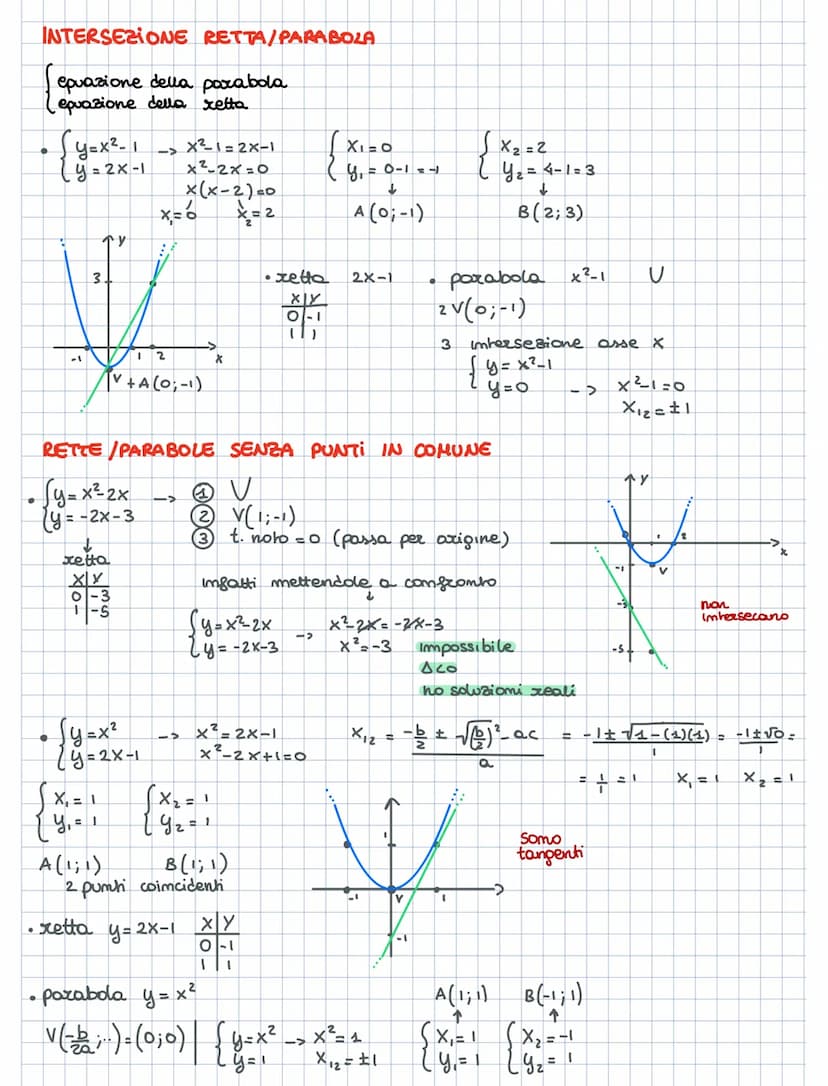 INTERSEZIONE RETTA/PARABOLA
{ equazione della parabola
{ equazione della retta
• { y=x²-1 --> x²-1=2x-1 { x₁=0 { x₂=2
{ y=2x-1 x²-2x=0 { y₁=0-1=-1 { y₂=4-1=3
x(x-2)=0 ↓ ↓
x₁=0 x₂=2 A(0;-1) B(2;3)
y
3
-1 1 2 x
V+A(0;-1)
• retta 2x-1
x|y
0|-1
1|1
• parabola x²-1 U
2 V(0;-1)
3 intersezione asse x
{ y=x²-1
{ y=0 --> x²-1=0
x₁₂=±1
RETTE/PARABOLE SENZA PUNTI IN COMUNE
• { y=x²-2x --> ① U
{ y=-2x-3 ② V(1;-1)
③ t. noto=0 (passa per origine)
↓
retta
x|y
0|-3
1|-5
infatti mettendole a confronto
↓
{ y=x²-2x --> x²-2x=-2x-3
{ y=-2x-3 x²=-3 impossibile
Δ<0
no soluzioni reali
y
1 2 x
-1 V
-3
-5
non
intersecano
• { y=x² --> x²=2x-1 x₁₂ = (-b/2 ± √((b/2)²-ac))/a = (-1±√(1-(1)(1)))/1 = (-1±√0)/1 =
{ y=2x-1 x²-2x+1=0
= 1/1 = 1 x₁=1 x₂=1
{ x₁=1 { x₂=1
{ y₁=1 { y₂=1
A(1;1) B(1;1)
2 punti coincidenti
1
-1 V 1
-1
Sono
tangenti
• retta y=2x-1
x|y
0|-1
1|1
• parabola y=x² A(1;1) B(-1;1)
↑ ↑
V(-b/2a;..)=(0;0) | { y=x² --> x²=1 { x₁=1 { x₂=-1
{ y=1 x₁₂=±1 { y₁=1 { y₂=1